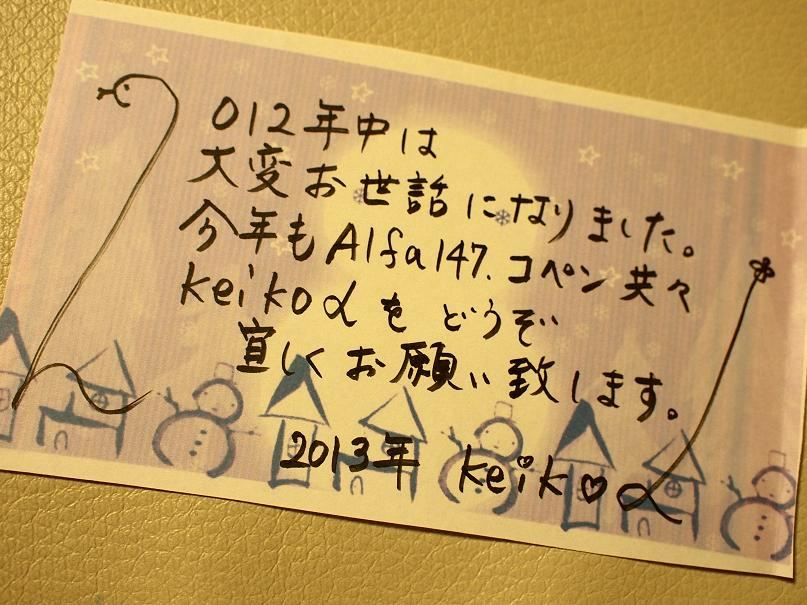 2012年中は
大変お世話になりました。
今年もAlfa147、コペン共々
keikoαをどうぞ
宜しくお願い致します。
2013年 keik♡α